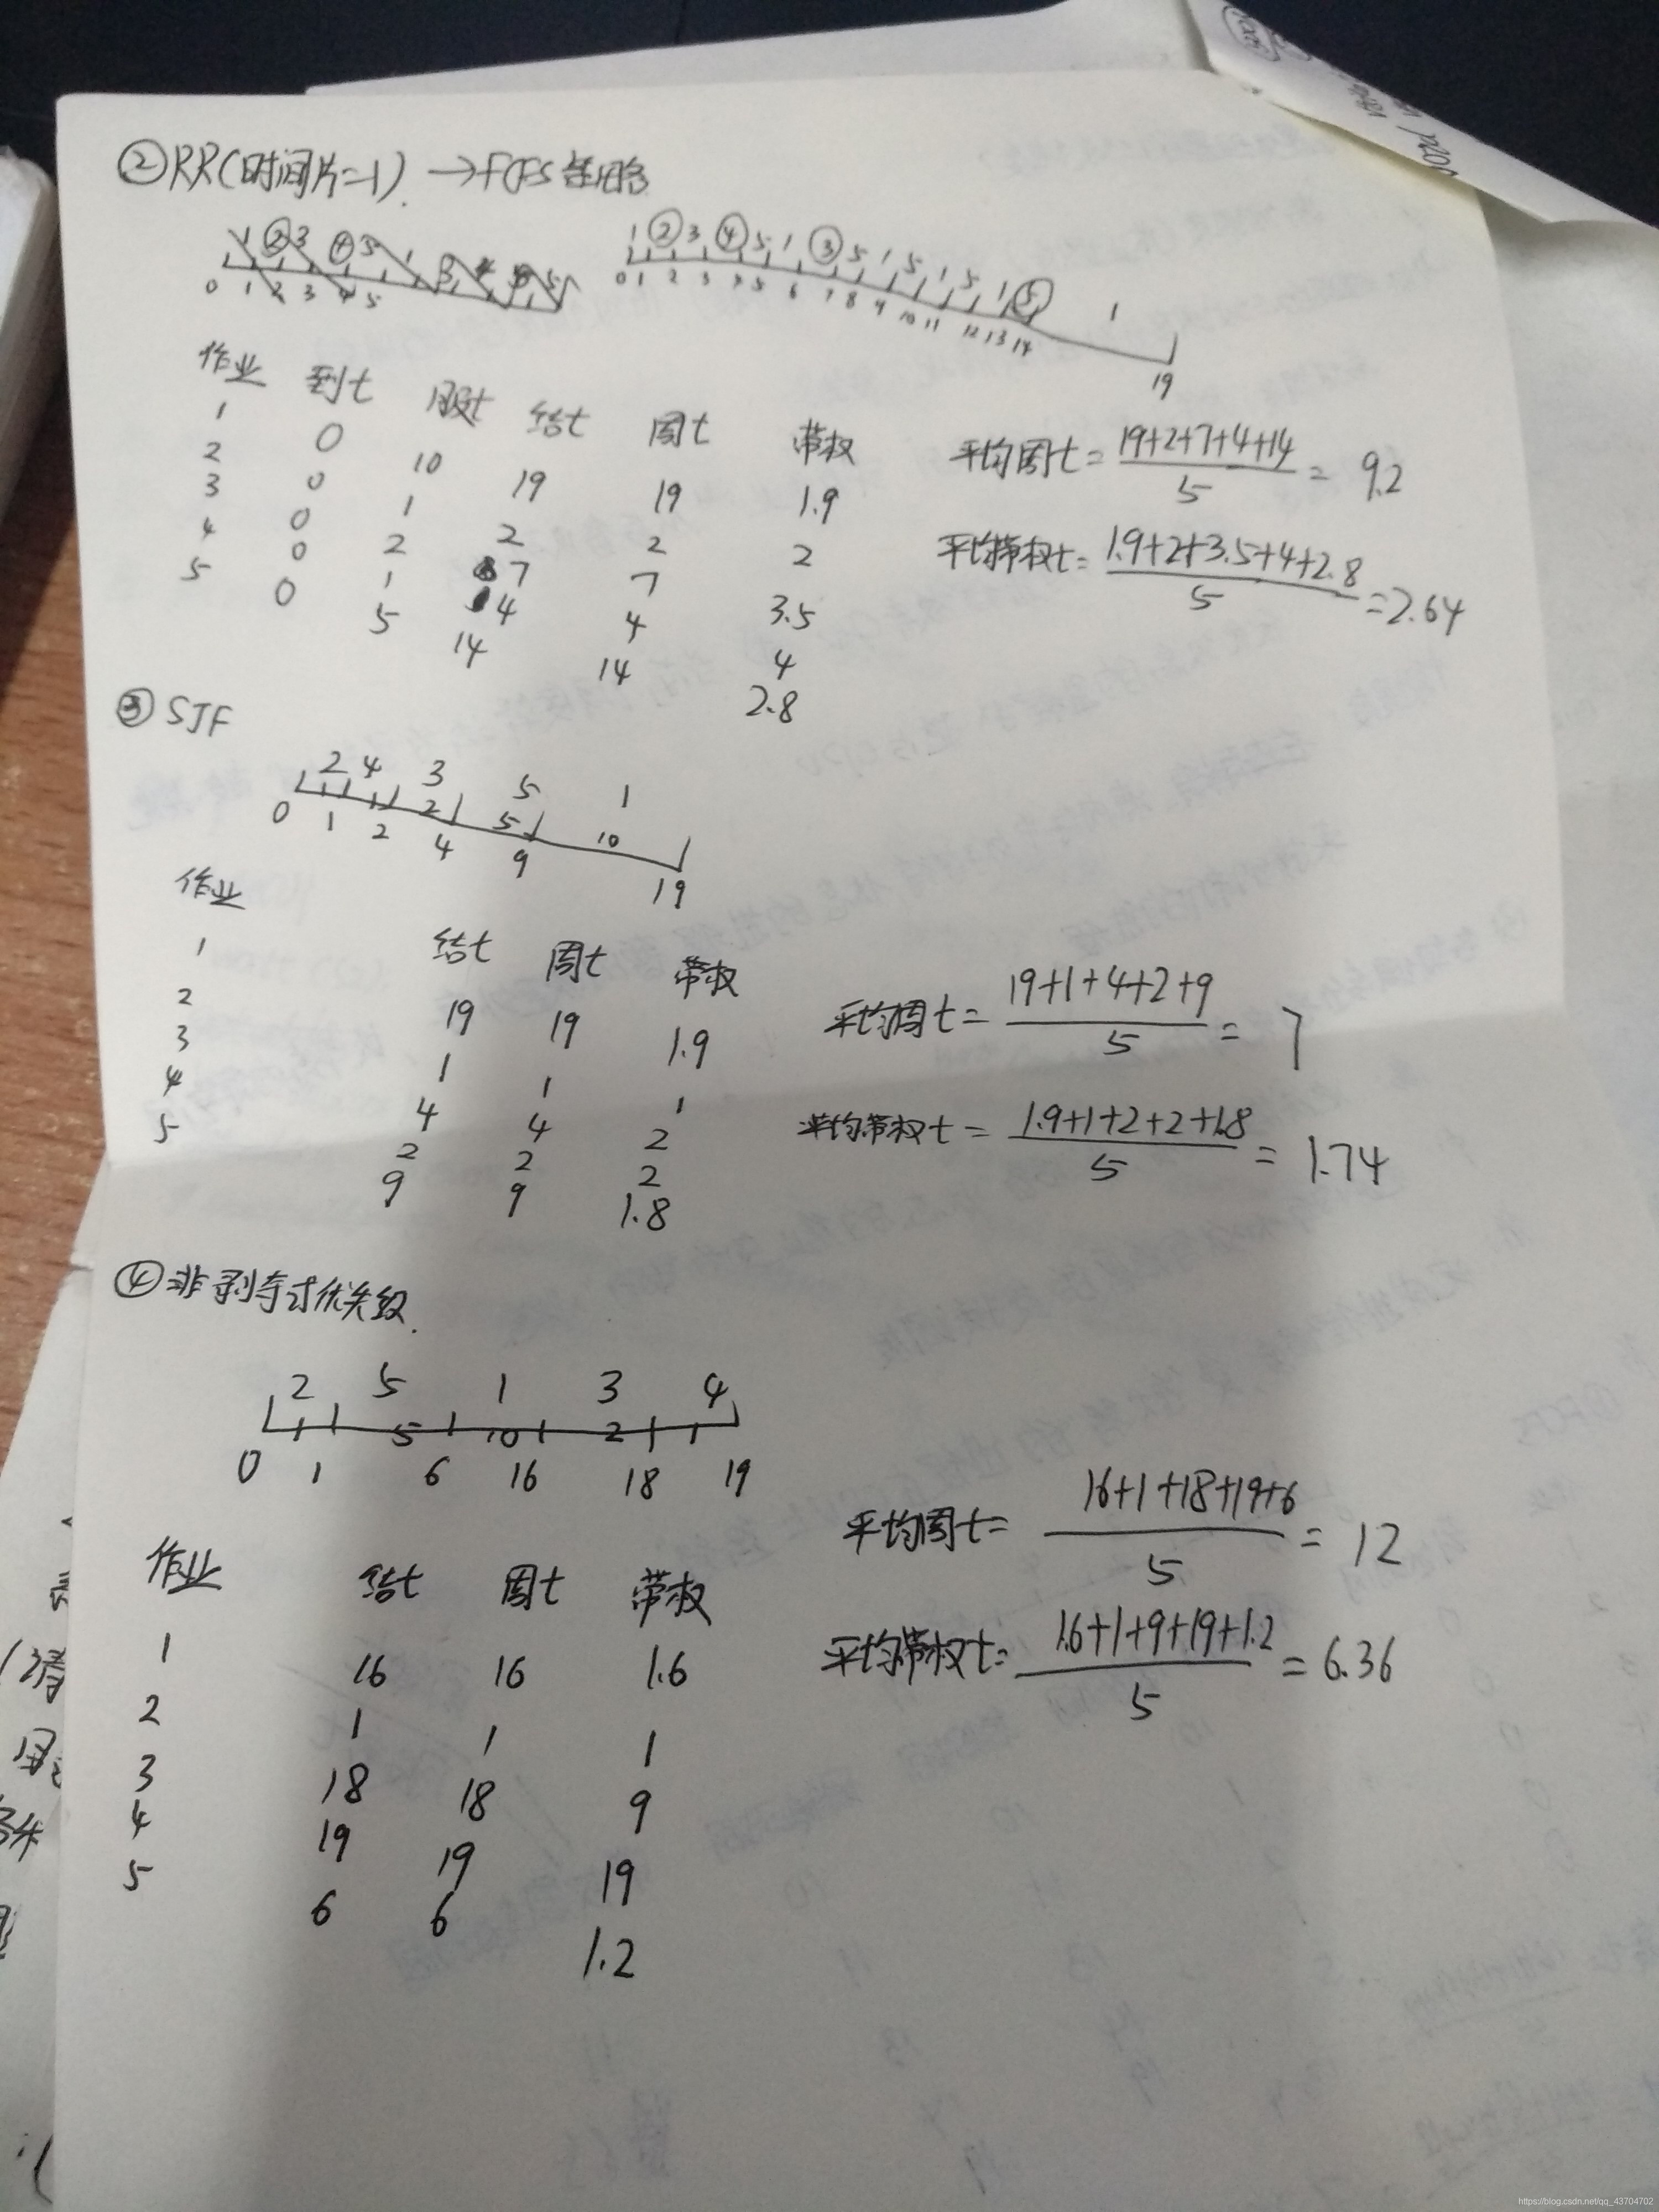 ②RR(时间片=1) →FCFS策略
1 ② 3 ④ 5 1 3 4
0 1 2 3 4 5
1 ② 3 ④ 5 1 ③ 5 1 5 1 5 1 ⑤ 1
0 1 2 3 4 5 6 7 8 9 10 11 12 13 14 19
作业 到t 服t 结t 周t 带权
1 0 10 19 19 1.9
2 0 1 2 2 2
3 0 2 7 7 3.5
4 0 1 4 4 4
5 0 5 14 14 2.8
平均周t=(19+2+7+4+14)/5=9.2
平均带权t=(1.9+2+3.5+4+2.8)/5=2.64
③ SJF
2 4 3 5 1
1 2 5 10
0 1 2 4 9 19
作业 结t 周t 带权
1 19 19 1.9
2 1 1 1
3 4 4 2
4 2 2 2
5 9 9 1.8
平均周t=(19+1+4+2+9)/5=7
平均带权t=(1.9+1+2+2+1.8)/5=1.74
④非剥夺式优先级.
2 5 1 3 4
1 5 10 2 1
0 1 6 16 18 19
作业 结t 周t 带权
1 16 16 1.6
2 1 1 1
3 18 18 9
4 19 19 19
5 6 6 1.2
平均周t=(16+1+18+19+6)/5=12
平均带权t=(1.6+1+9+19+1.2)/5=6.36
https://blog.csdn.net/qq_43704702